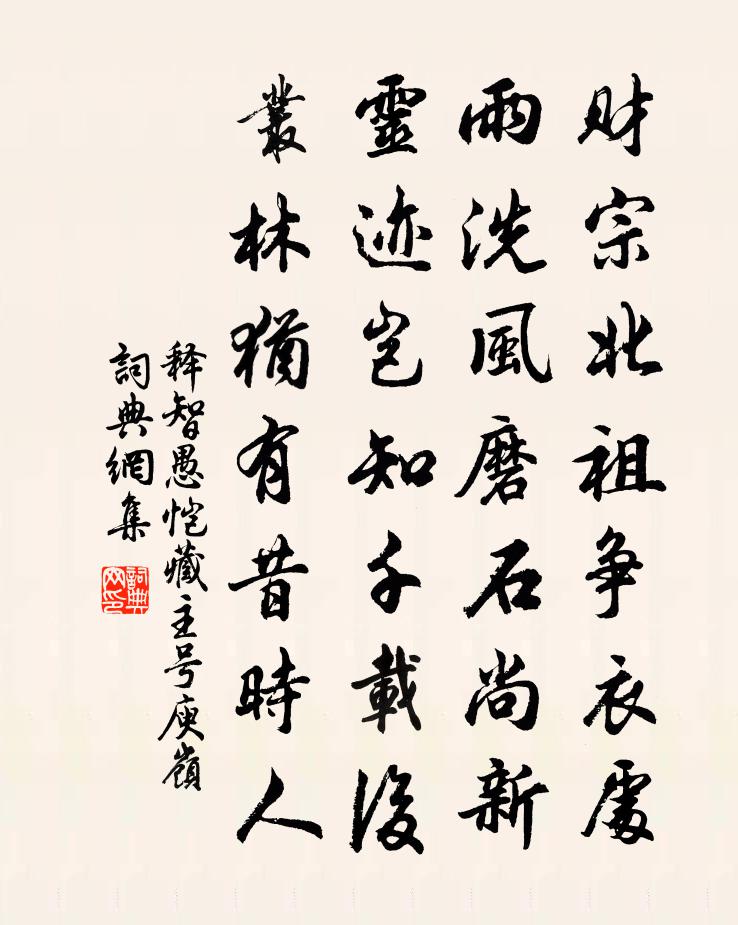 财宗北祖争衣處
雨洗風磨石尚新
靈迹岂知千載後
叢林猶有昔時人
释智愚恺藏主号庾嶺
詞典網集
詞典
网印